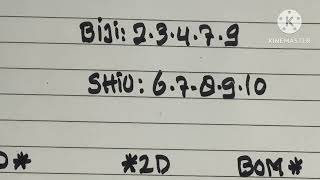 BiJi: 2.3.4.7.9
SHiO: 6.7.8.9.10
*2D BOM*
KINEMASTER